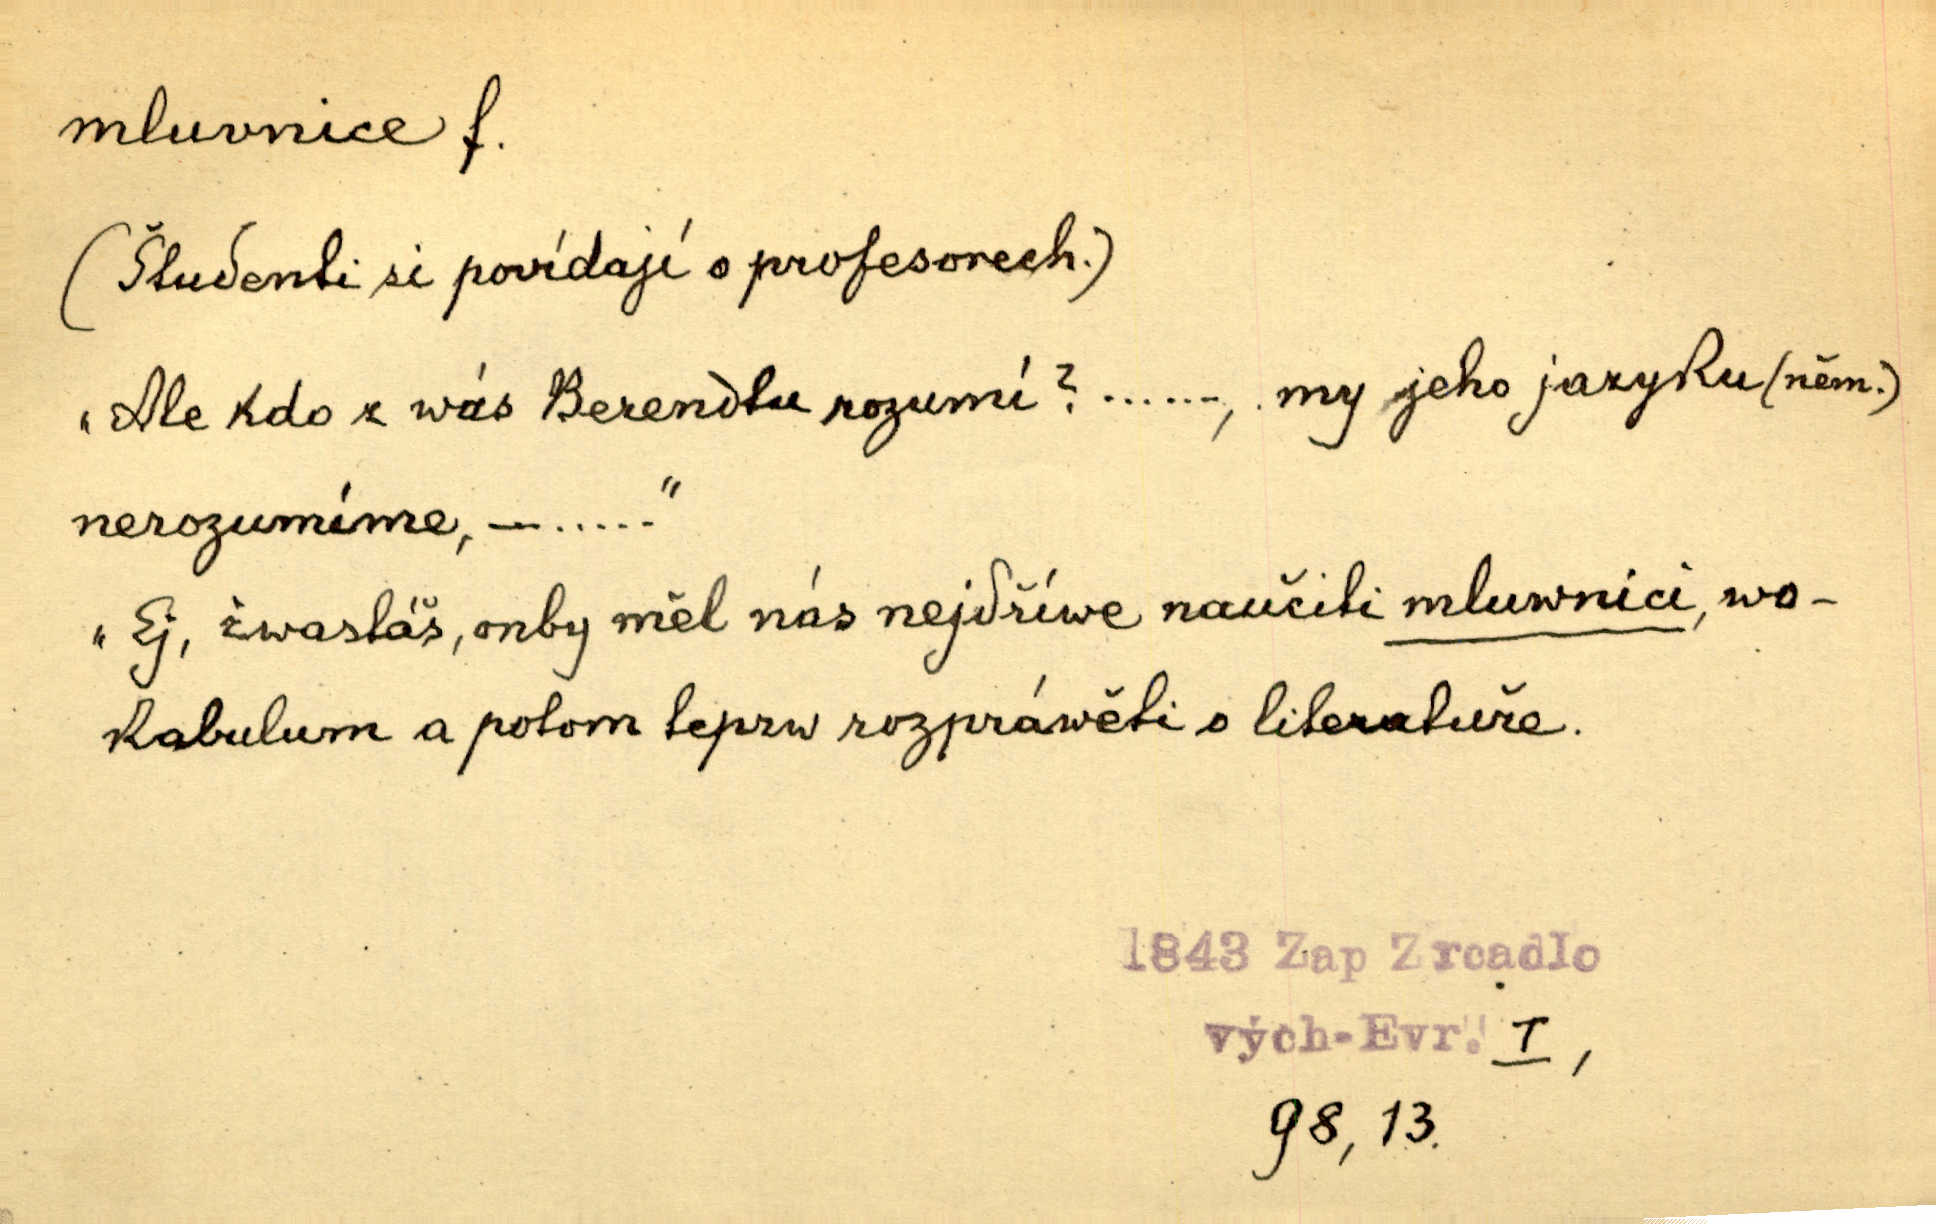 mluvnice f.
(Študenti si povídají o profesorech.)
„Ale kdo z wás Berendtu rozumí? ......, my jeho jazyku (něm.)
nerozumíme, — ......"
„Ej, žwastáš, onby měl nás nejdříwe naučiti mluwnici, wo-
kabulum a potom teprw rozpráwěti o literatuře.
1843 Zap Zrcadlo
vých-Evr. I,
98, 13.